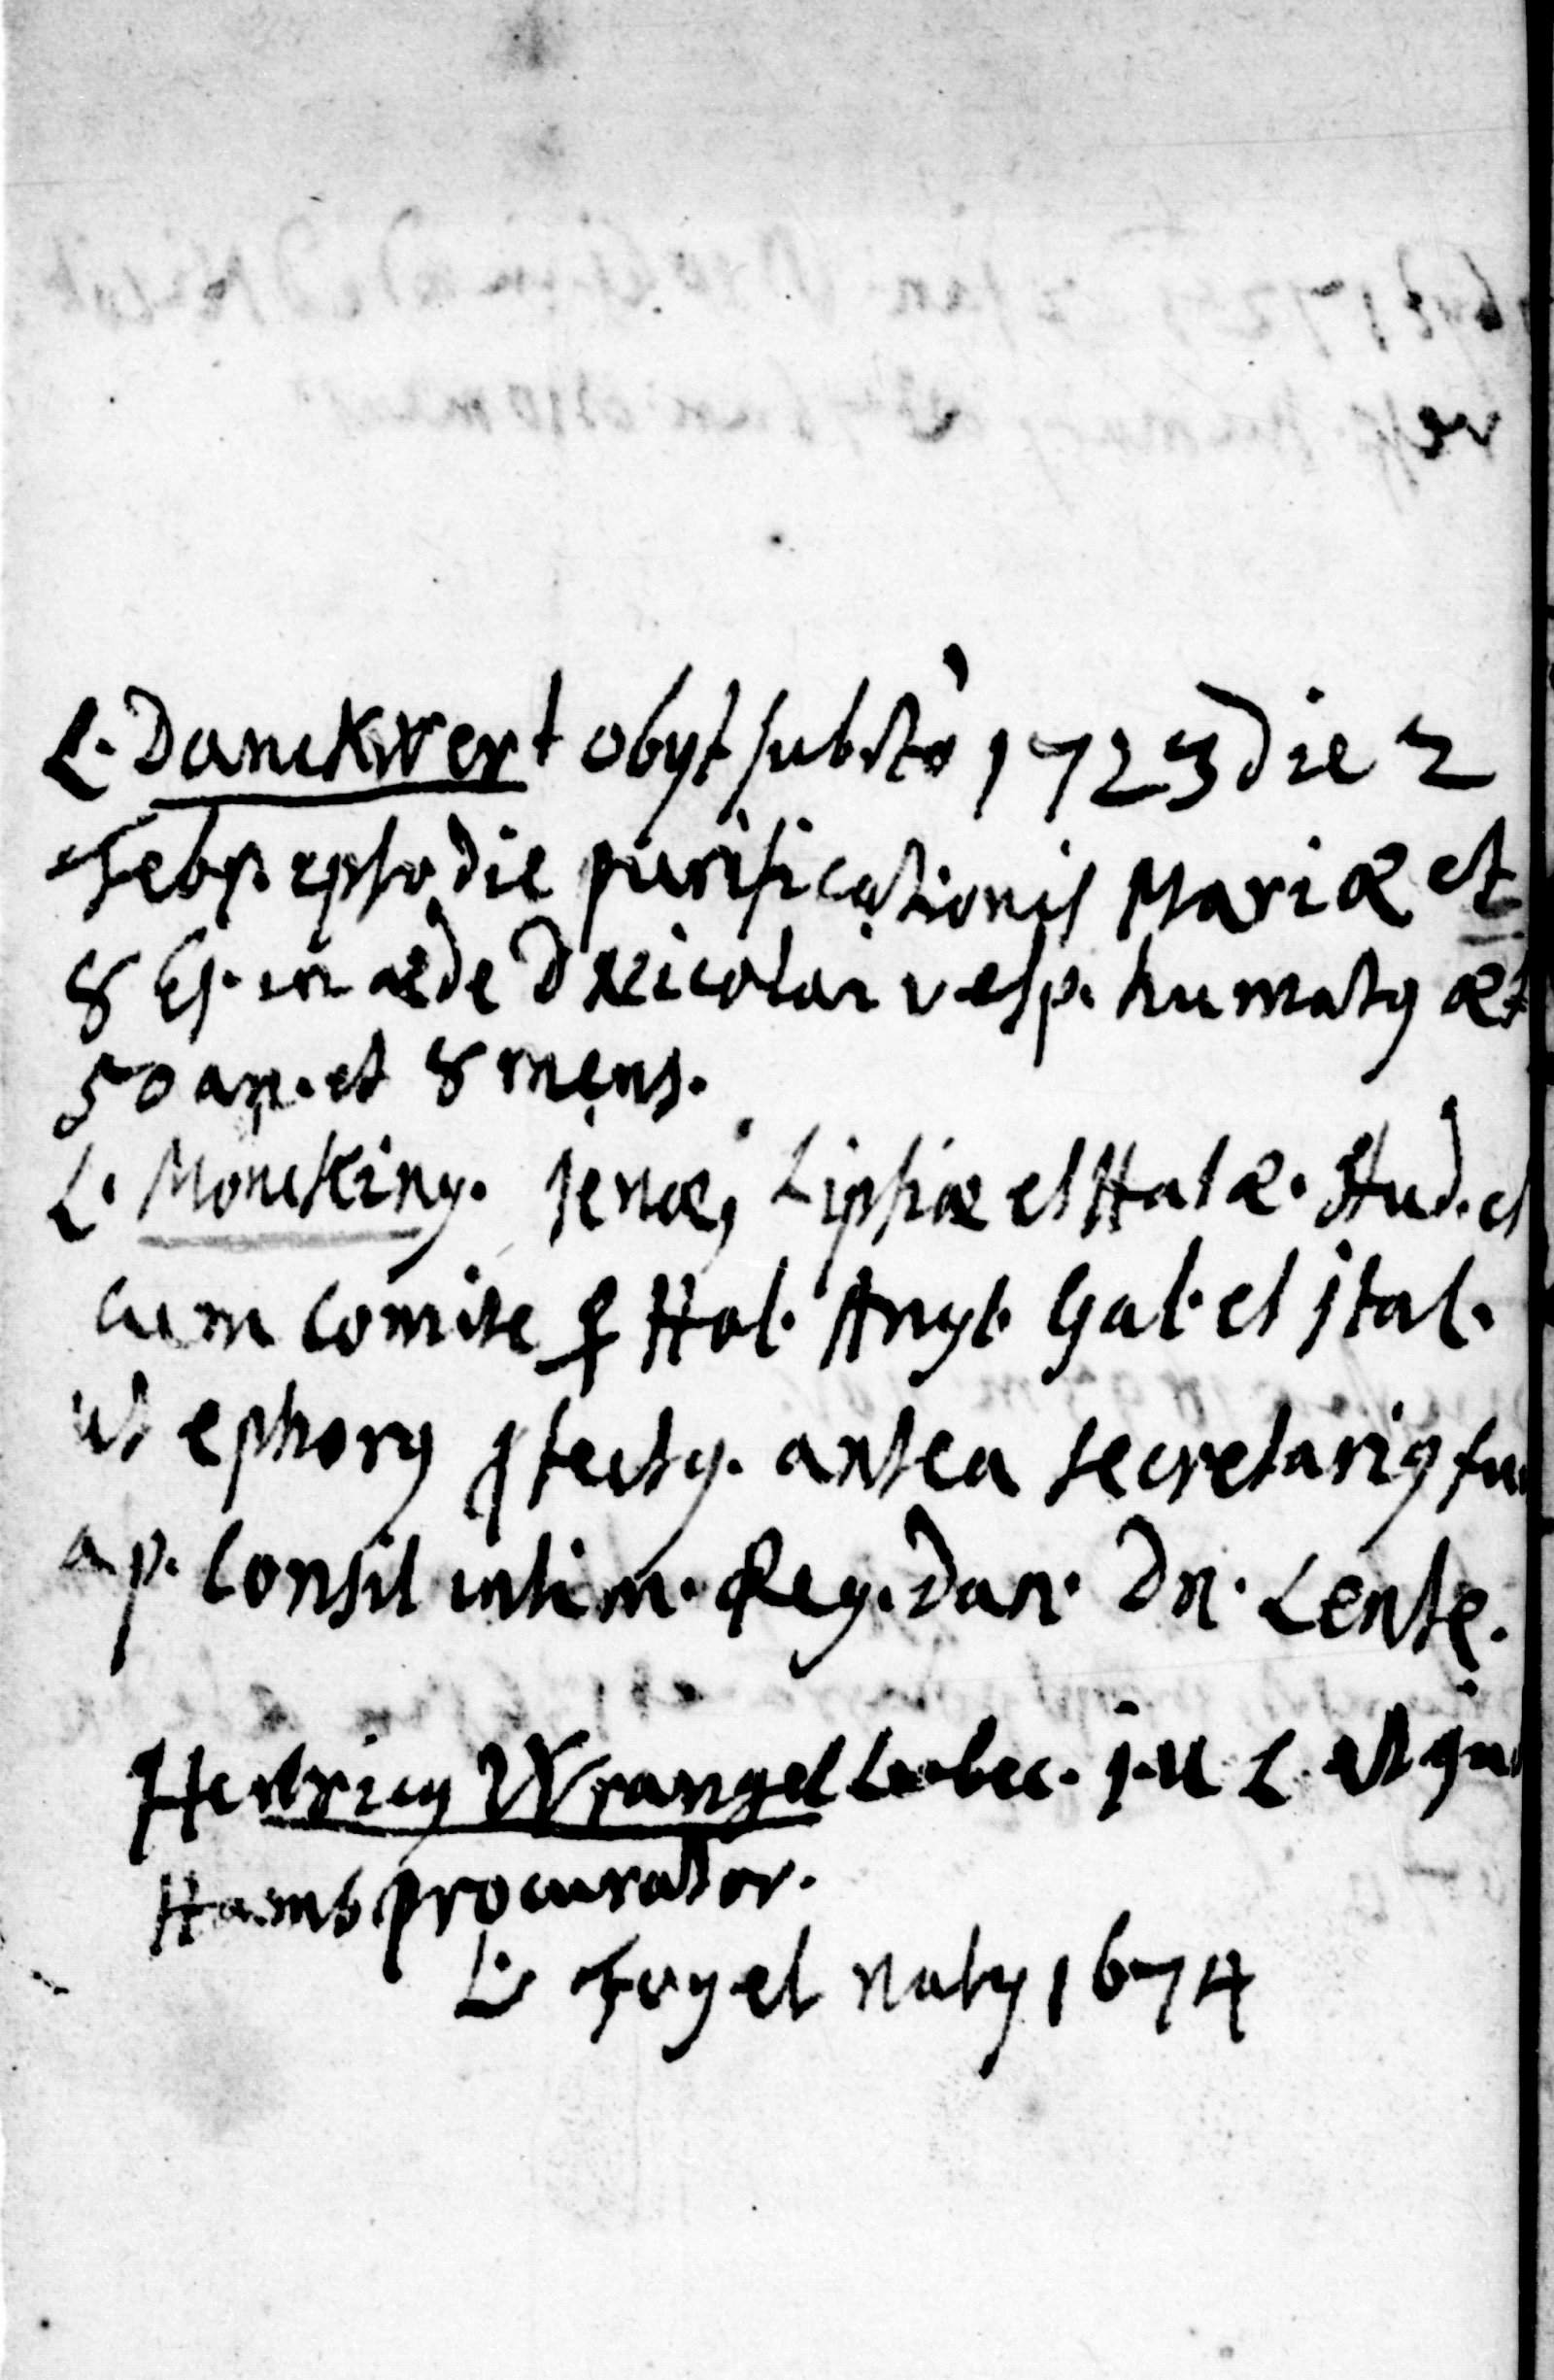 L. Danckwert obyt subitò 1723 die 2
Febr. ipso die purificationis Mariæ et
8 Ej. in æde D Nicolai vesp. humatꝰ æt
50 an. et 8 mens.
L. Monckinꝰ. Jenæ, Lipsiæ et Halæ. Stud. et
cum Comite per Hol. Angl. Gal. et Ital.
ut ephorꝰ antea secretariꝰ fui
ap. Consil intim. Reg. Dan. Dn. Lente.
Henricꝰ Wrangel Lubec. J. U L. et
Hamb procurator.
L. Fogel natꝰ 1674